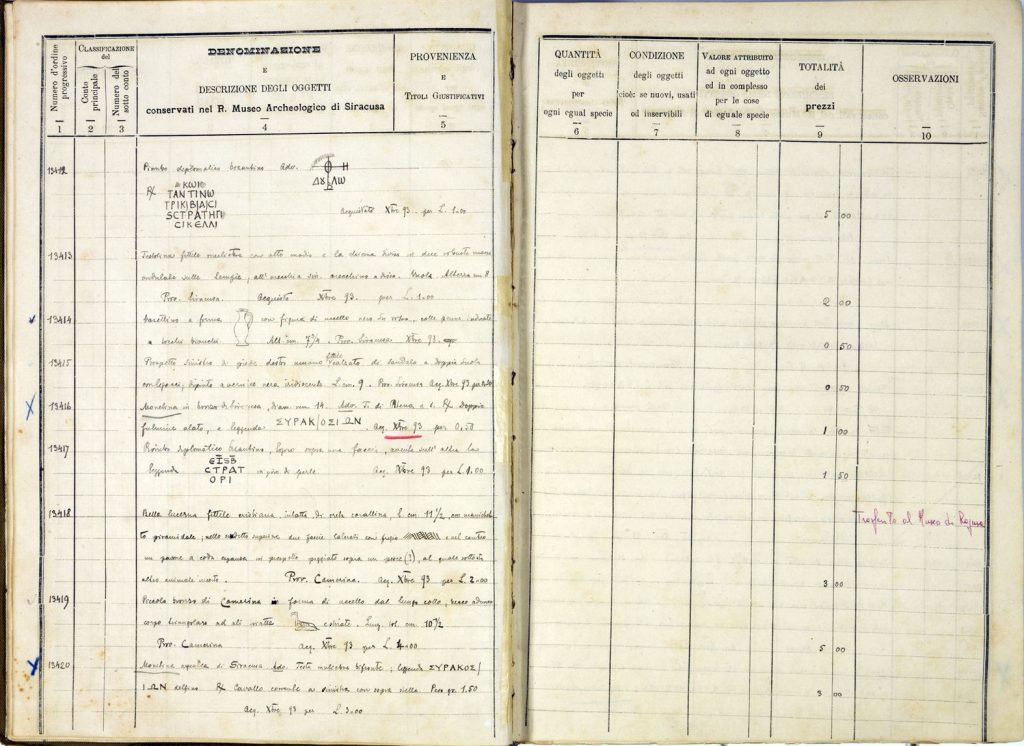 Numero d'ordine progressivo
CLASSIFICAZIONE
del
Conto principale
Numero del sotto conto
DENOMINAZIONE
E
DESCRIZIONE DEGLI OGGETTI
conservati nel R. Museo Archeologico di Siracusa
PROVENIENZA
E
TITOLI GIUSTIFICATIVI
1 2 3 4 5
13412 Piombo diplomatico bizantino Adv. H
ΔΥ ΛΩ
R/ ΚΩΙ
ΤΑΝΤΙΝΩ
ΤΡΙΚ|Β|ΑϹΙ
SϹΤΡΑΤΗΓΙ
ϹΙΚΕΛΛΙ
Acquistato Xbre 93 per L. 1.00
13413 Testolina fittile muliebre con alto modio e la chioma divisa in due robuste masse
ondulate sulle tempie, all'orecchia sin. orecchino a disco. Altezza cm 8
Prov. Siracusa. Acquisto Xbre 93. per L. 1.00
13414 Vasettino a forma con figura di uccello nero su rosso, colle penne indicate
a tocchi bianchi Alt. cm. 7 3/4. Prov. Siracusa Xbre 93.
13415 Prospetto sinistro di piede destro umano fittile calzato di sandalo a doppia suola
dipinto a vernice nera iridiscente. L. cm. 9. Prov. Siracusa Acq. Xbre 93 per
13416 Monetina in bronzo di Siracusa, diam. mm 14. Adv. T. di a s. R/ Doppio
fulmine alato, e leggenda ΣΥΡΑΚ/ΟΣΙΩΝ. Acq. Xbre 93 per 0.50
13417 Piombo diplomatico bizantino, sopra una faccia, avente sull'altra la
leggenda ΕΙSΒ in giro di perle Acq. Xbre 93 per L. 1.00
ϹΤΡΑΤ
ΟΡΙ
13418 Bella lucerna fittile cristiana, intatta, di creta corallina, L. cm. 11 1/2, con manichet-
to piramidale; nella superiore due fascie laterali con fregio e nel centro
un pavone a coda espansa in prospetto poggiato sopra un pesce (?), al quale sottostà
altro animale morto. Prov. Camerina. Acq. Xbre 93 per L. 2.00
13419 Piccolo bronzo di Camerina in forma di uccello dal lungo collo, becco adunco
corpo triangolare ad ali e striate. Lung. tot. cm. 10 1/2
Prov. Camerina Acq. Xbre 93 per L. 4.00
13420 Monetina argentea di Siracusa Adv. Testa muliebre bifronte; leggenda ΣΥΡΑΚΟΣ/
ΙΩΝ delfino R/ Cavallo corrente a sinistra con sopra stella. Peso gr. 1.50
Acq. Xbre 93 per L. 3.00
QUANTITÀ
degli oggetti
per
ogni egual specie
6
CONDIZIONE
degli oggetti
cioè: se nuovi, usati
od inservibili
7
VALORE ATTRIBUITO
ad ogni oggetto
ed in complesso
per le cose
di eguale specie
8
TOTALITÀ
dei
prezzi
9
OSSERVAZIONI
10
5 00
2 00
0 50
0 50
1 00
1 50
Trasferito al Museo di Ragusa
3 00
5 00
3 00